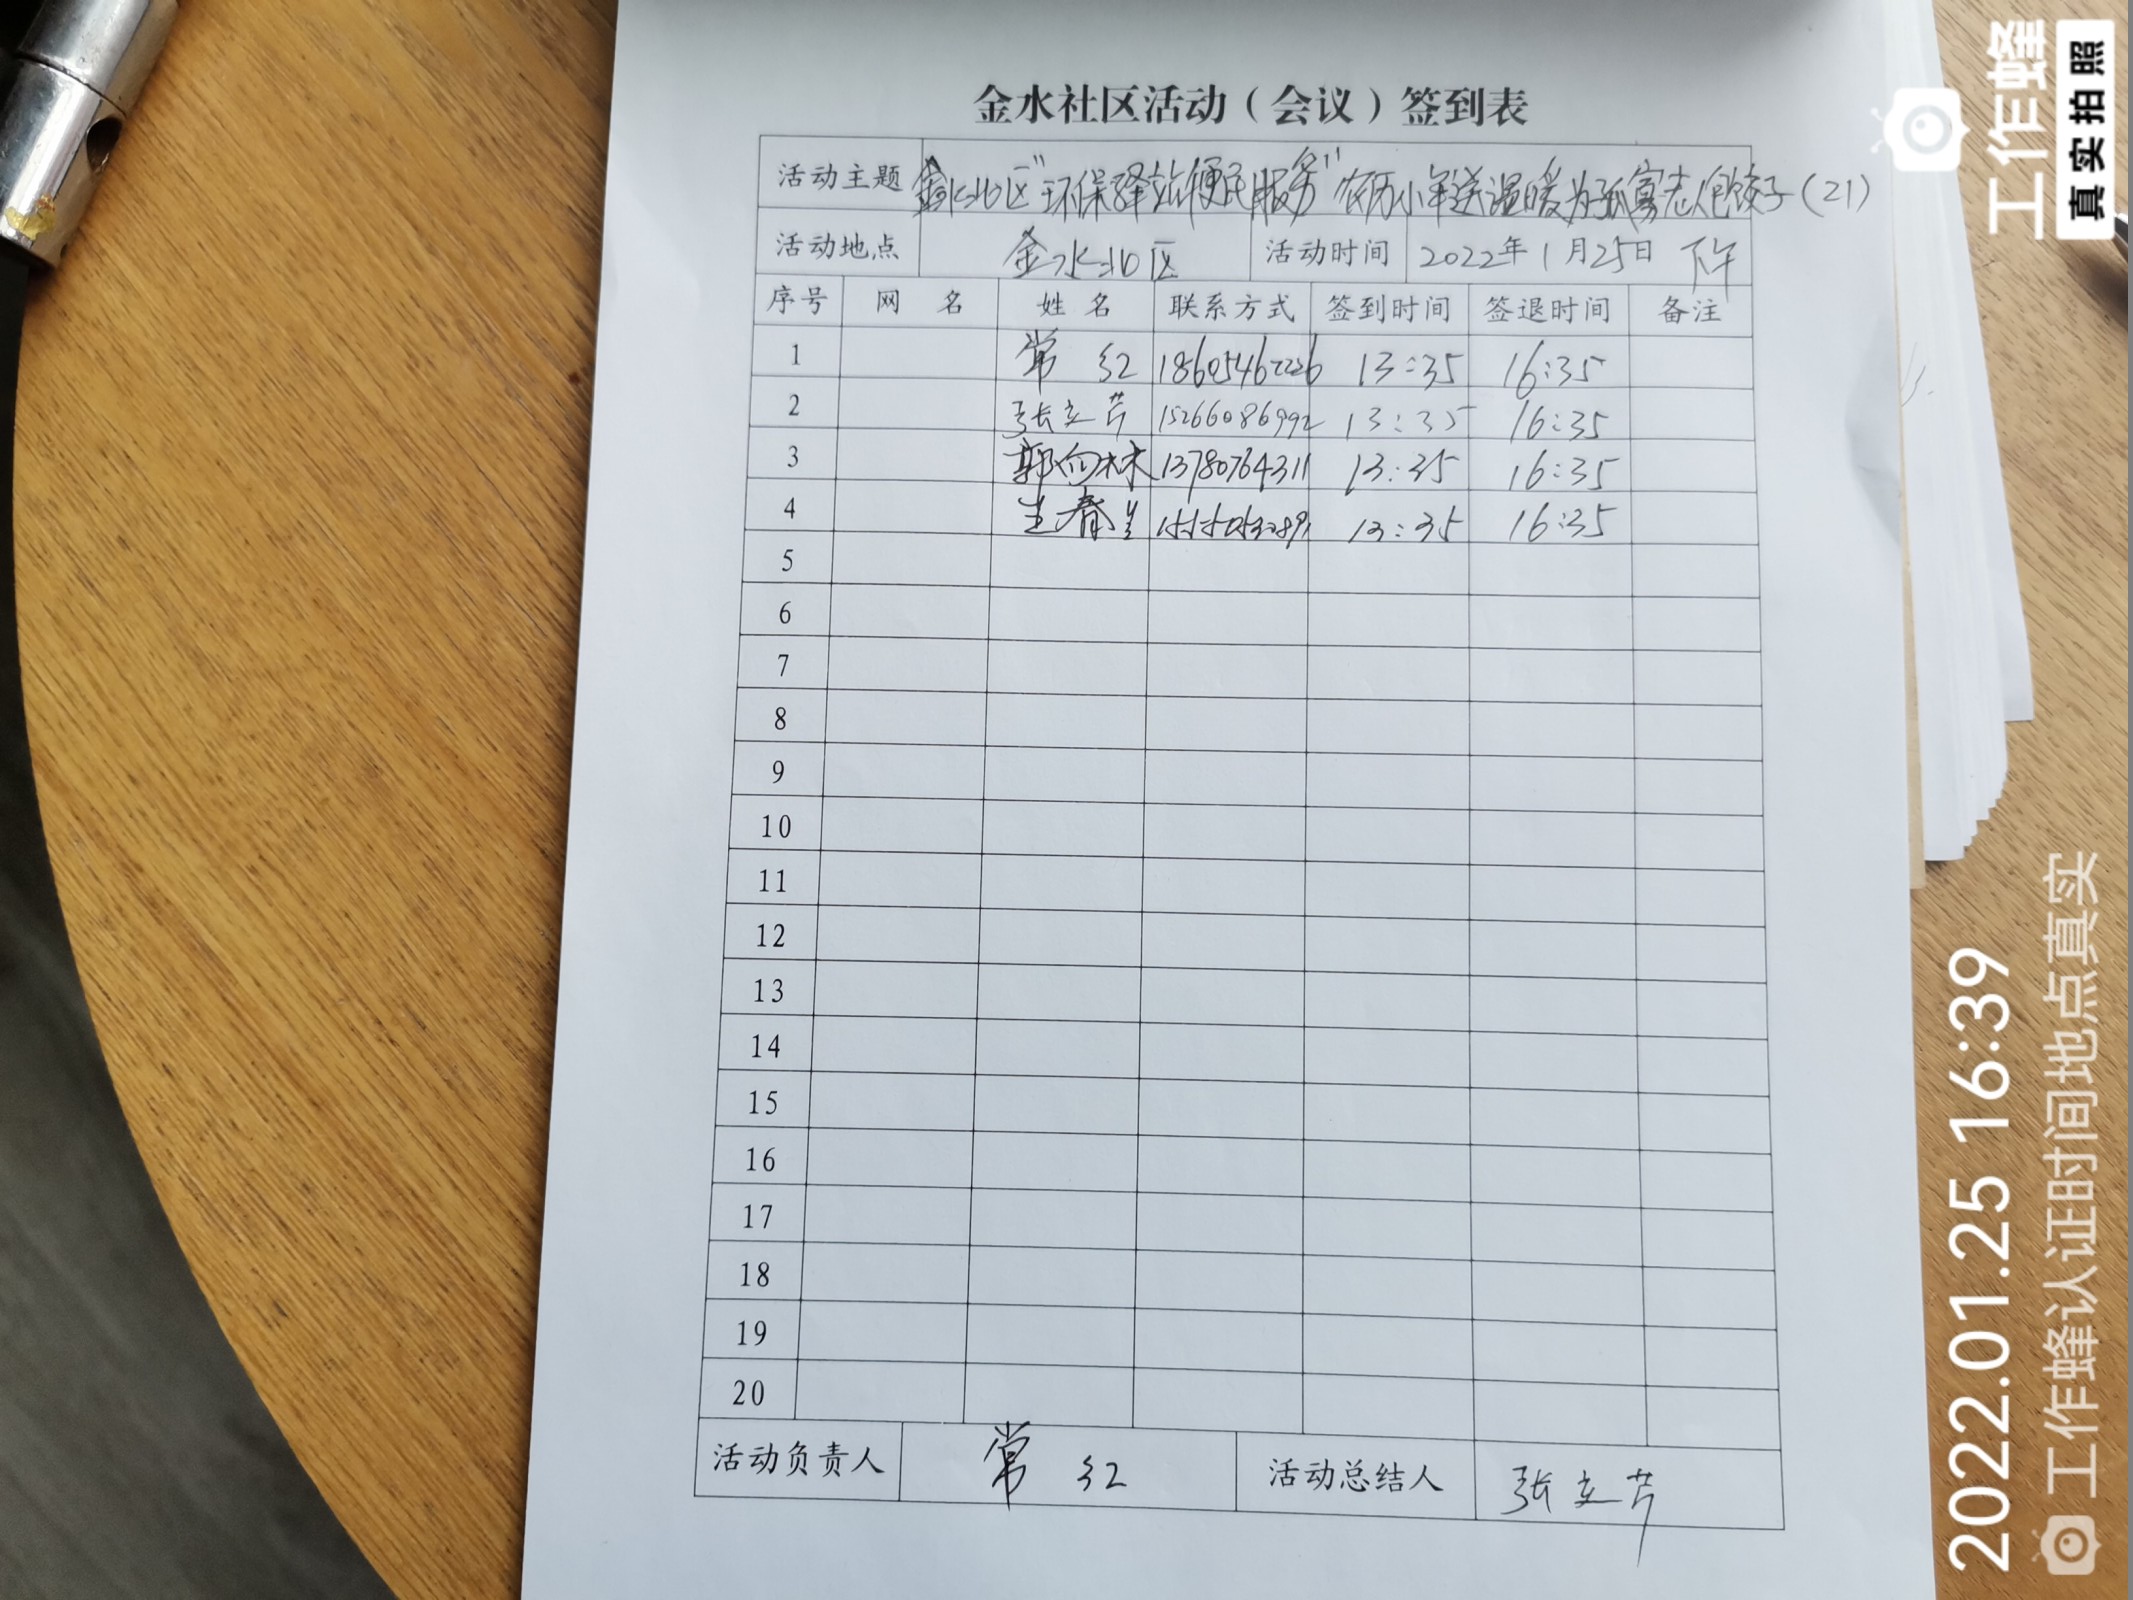 金水社区活动（会议）签到表
活动主题 金水北区"环保驿站便民服务"农历小年送温暖为孤寡老人包饺子（21）
活动地点 金水北区 活动时间 2022年1月25日 下午
序号 网 名 姓 名 联系方式 签到时间 签退时间 备注
1 常 红 13:35 16:35
2 张立芹 15266086992 13:35 16:35
3 郭向林 13780764311 13:35 16:35
4 13:35 16:35
5
6
7
8
9
10
11
12
13
14
15
16
17
18
19
20
活动负责人 常 红 活动总结人 张立芹
工作蜂
真实拍照
2022.01.25 16:39
工作蜂认证时间地点真实